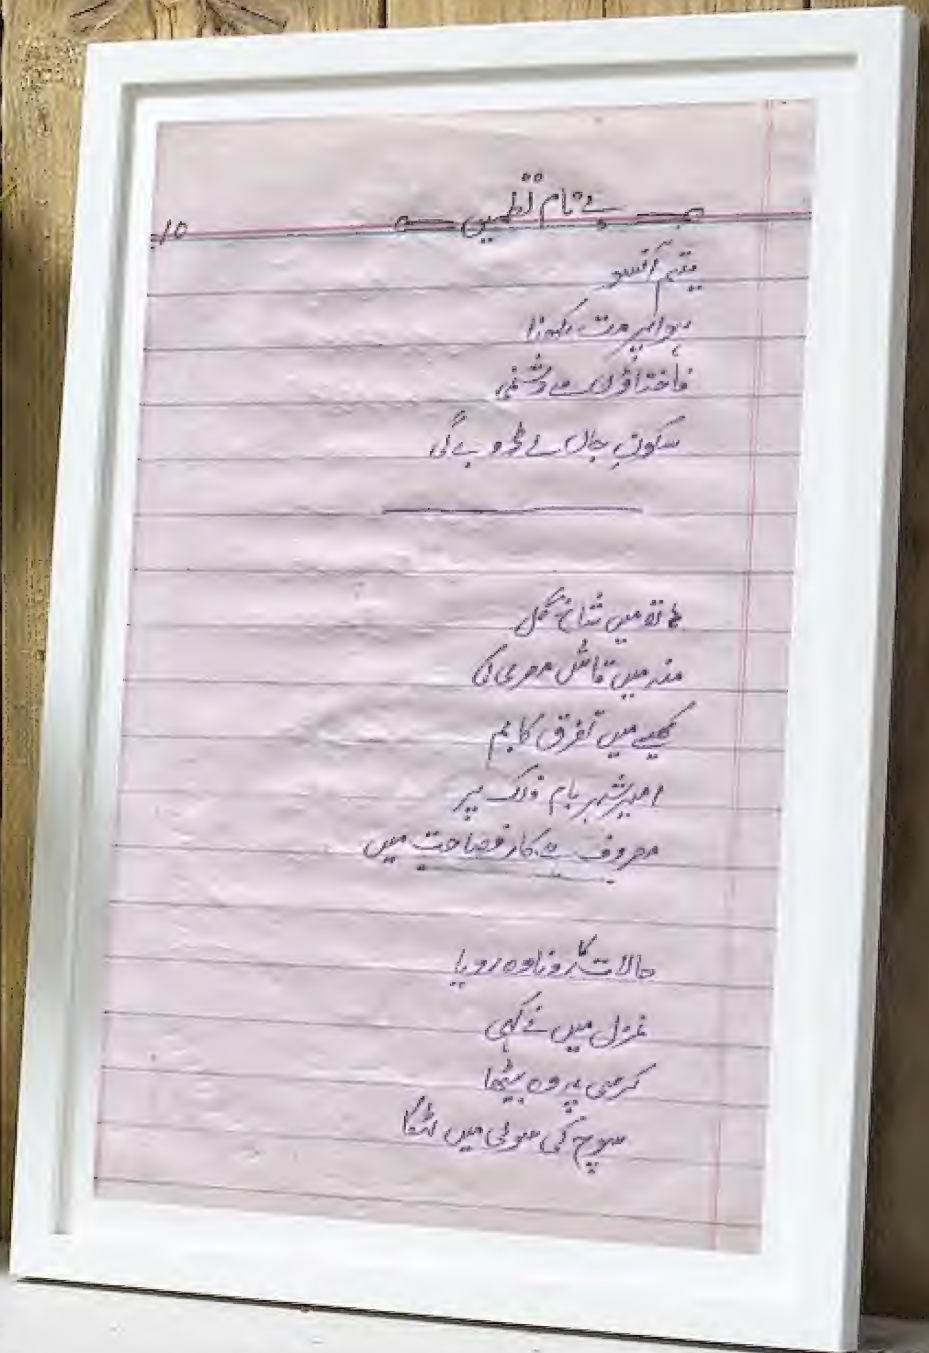 بے نام نظمیں
10
یتیم آنسو
ہوا پر مت رکھنا
فاختاؤں سے دشمنی
سکونِ جاں لے ڈوبے گی
ہاتھ میں شاخِ گل
منہ میں قاش مصری کی
کھیسے میں تفرق کا بم
امیرِ شہر بام فلک پر
مصروف ہے کار فصاحت میں
حالات کا رونا وہ رویا
غزل میں نے کہی
کرسی پہ وہ بیٹھا
سوچ کی سولی میں لٹکا